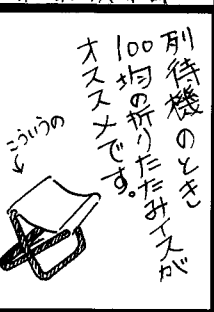 列待機のとき
100均の折りたたみイスが
オススメです。
こういうの